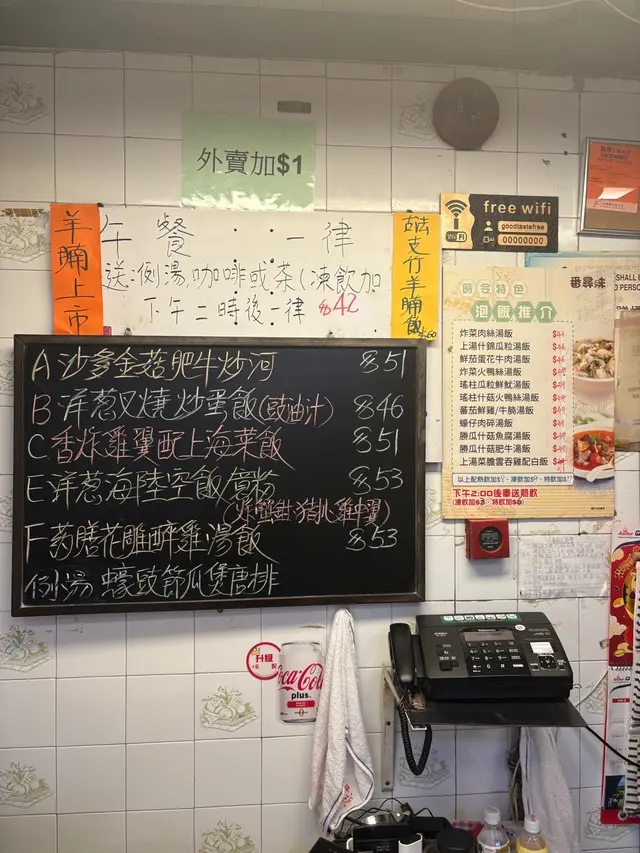 外賣加$1
午餐 一律
送:例湯,咖啡或茶(凍飲加
下午二時後一律 $42
羊腩上市
古法支竹羊腩飯
$60
free wifi
WiFi
goodtastefree
00000000
A 沙爹金菇肥牛炒河 $51
B 洋葱叉燒炒蛋飯(豉油汁) $46
C 香炸雞翼配上海菜飯 $51
E 洋葱海陸空飯/意粉 $53
F 葯膳花雕醉雞湯飯 $53
例湯 蠔豉節瓜煲唐排
番尋味
時令特色
泡飯推介
炸菜肉絲湯飯
上湯什錦瓜粒湯飯
鮮茄蛋花牛肉湯飯
炸菜火鴨絲湯飯
瑤柱瓜粒鮮魷湯飯
瑤柱瓜菇火鴨絲湯飯
蕃茄鮮雞/牛腩湯飯
蠔仔肉碎湯飯
勝瓜什菇魚腐湯飯
勝瓜什菇肥牛湯飯
上湯菜膽雲吞雞配白飯
下午2:00後奉送熱飲
(凍飲加$3、特飲加$6)
升級
Coca-Cola
plus